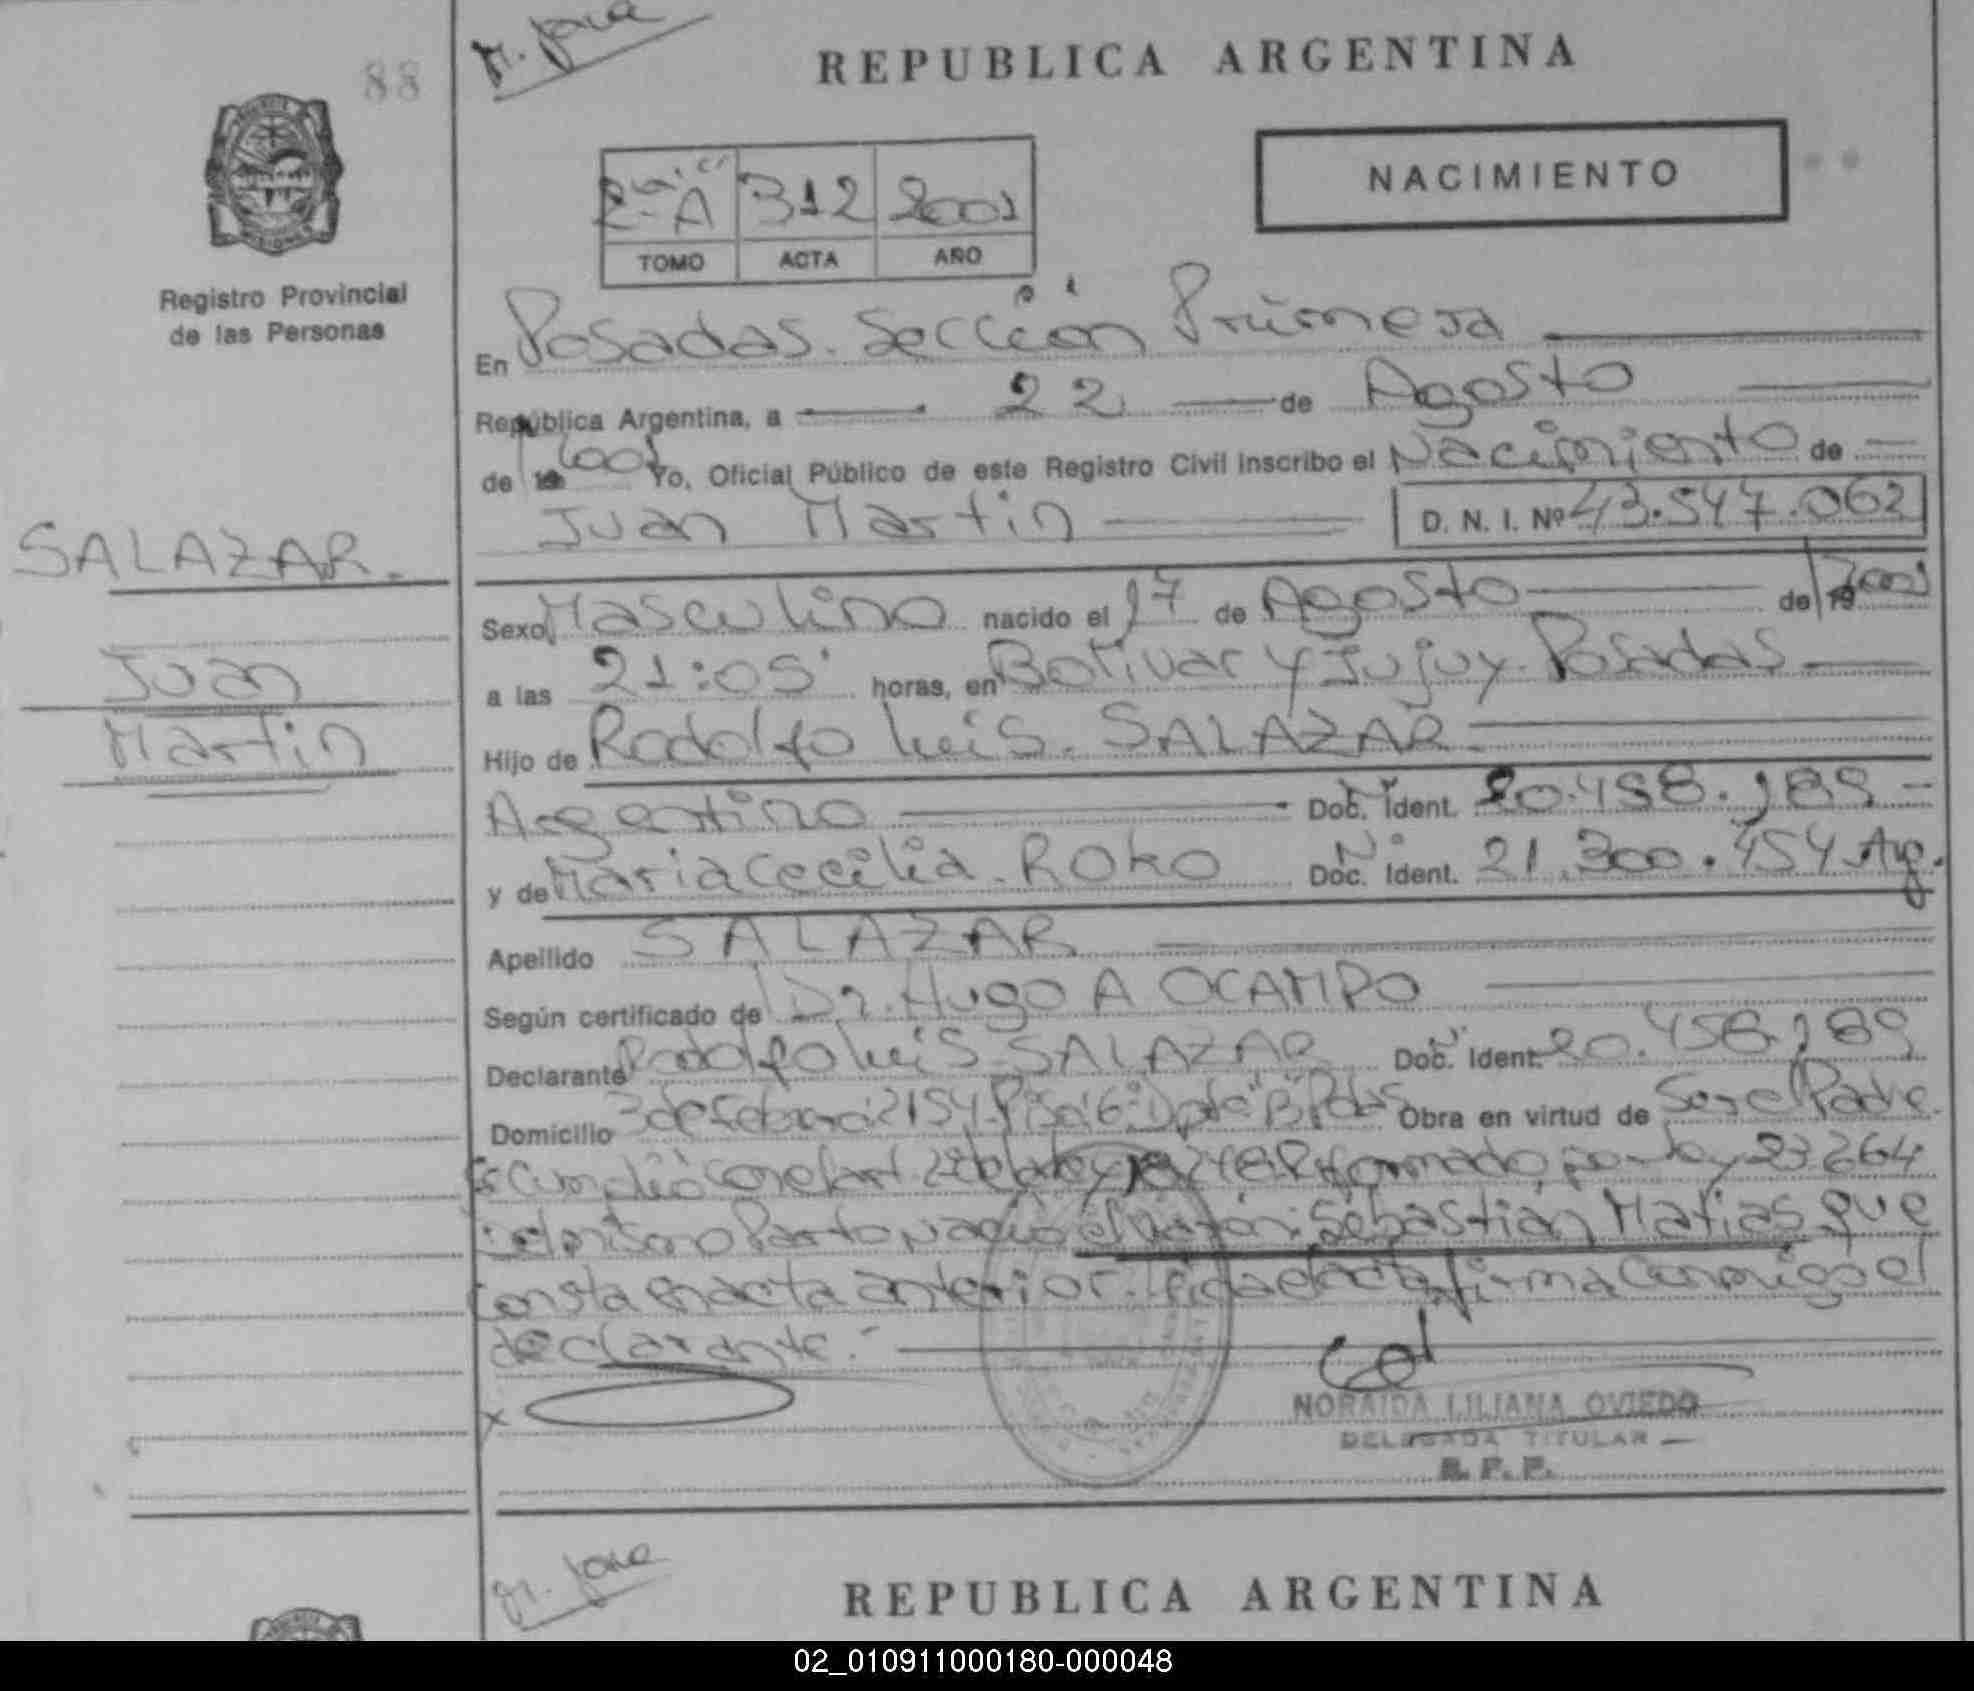 88
M. Jova
REPUBLICA ARGENTINA
NACIMIENTO
2-A 312 2001
TOMO ACTA AÑO
Registro Provincial
de las Personas
En Posadas. Sección Primera
República Argentina, a 22 de Agosto
de 2001 Yo, Oficial Público de este Registro Civil inscribo el Nacimiento de
Juan Martin D. N. I. Nº 43.547.062
SALAZAR.
Juan
Martin
Sexo Masculino nacido el 17 de Agosto de 19 2001
a las 21:05' horas, en Bolivar y Jujuy. Posadas
Hijo de Rodolfo Luis. SALAZAR
Argentino Doc. Ident. 20.458.189
y de Maria Cecilia. ROKO Doc. Ident. 21.300.454 Arg.
Apellido SALAZAR
Según certificado de Dr. Hugo A OCAMPO
Declarante Rodolfo Luis SALAZAR Doc. Ident. 20.458.189
Domicilio 3 de Febrero 2154 Piso 6 Dpto "B" Pdas Obra en virtud de Ser el Padre
Se cumplió con el art. de la ley 18248 Reformado por Ley 23264
del mismo Parto nació el varón: Sebastián Matias que
consta en acta anterior. Leida el acta firma conmigo el
declarante.-
x
NORAIDA LILIANA OVIEDO
DELEGADA TITULAR
R. P. P.
REPUBLICA ARGENTINA
02_010911000180-000048